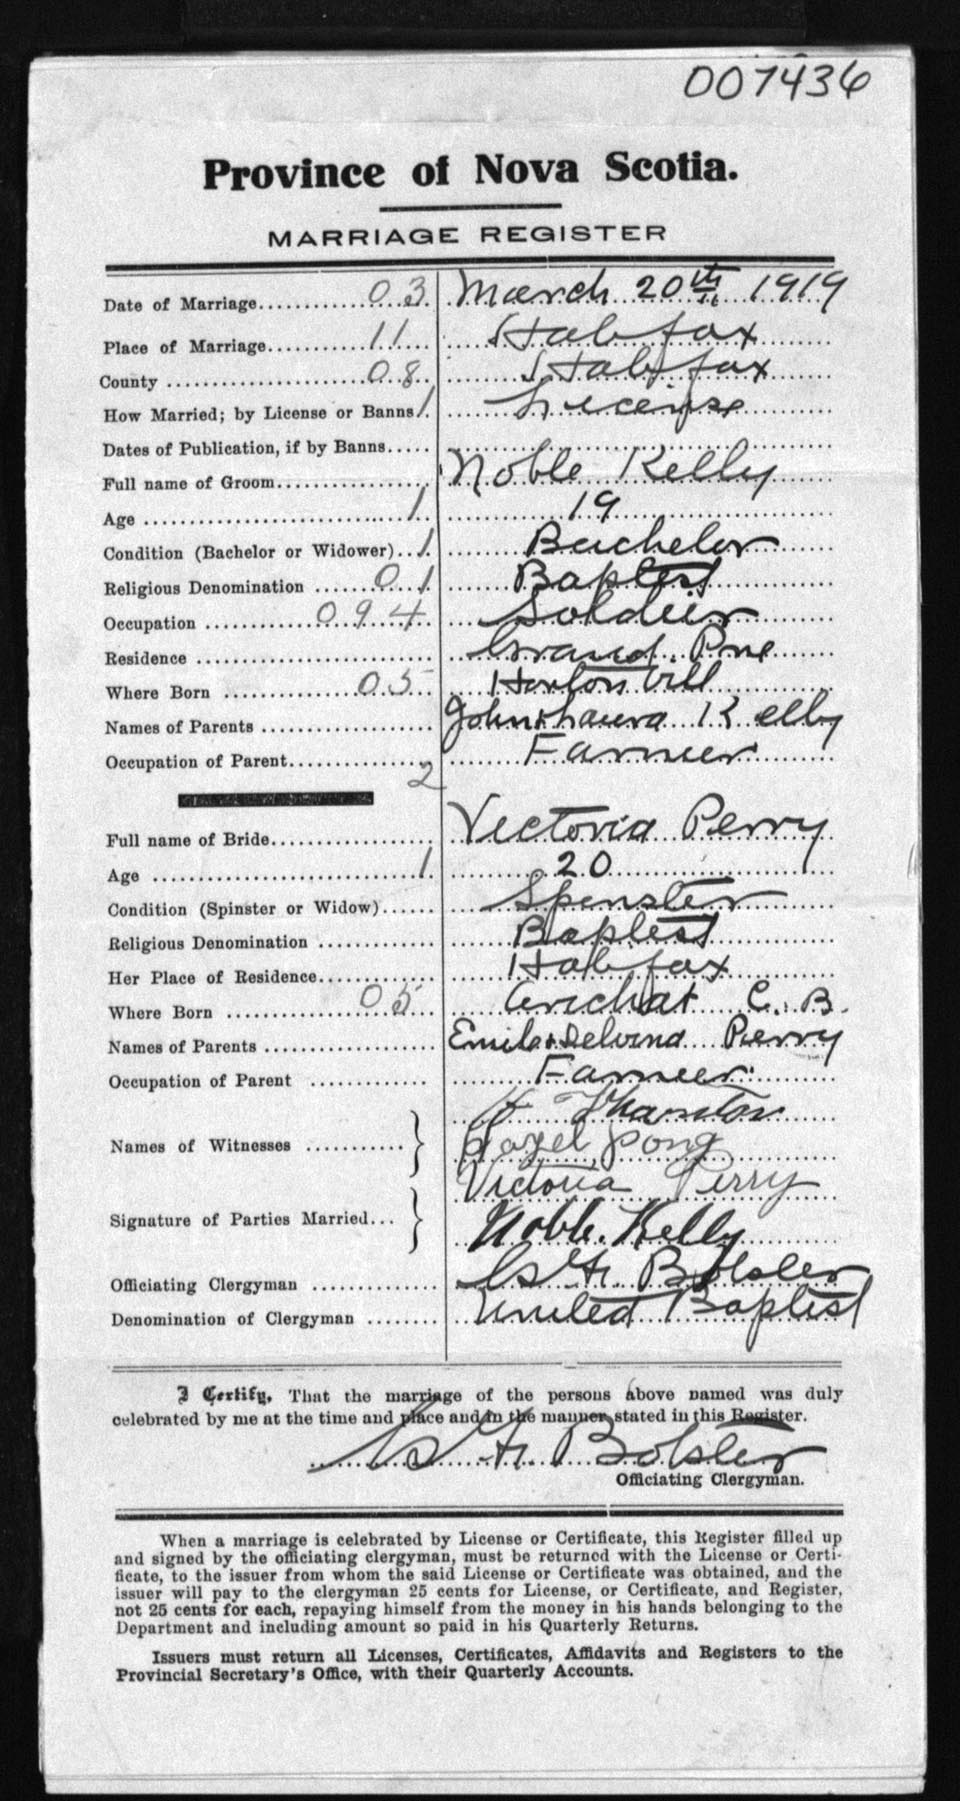 007436
Province of Nova Scotia.
MARRIAGE REGISTER
Date of Marriage 03 March 20th 1919
Place of Marriage 11 Halifax
County 08 Halifax
How Married; by License or Banns 1 License
Dates of Publication, if by Banns
Full name of Groom Noble Kelly
Age 1 19
Condition (Bachelor or Widower) 1 Bachelor
Religious Denomination 01 Baptist
Occupation 094 Soldier
Residence Grand Pre
Where Born 05 Horton vill
Names of Parents John & Laura Kelly
Occupation of Parent Farmer
2
Full name of Bride Victoria Perry
Age 1 20
Condition (Spinster or Widow) Spinster
Religious Denomination Baptist
Her Place of Residence Halifax
Where Born 05 Arichat C. B.
Names of Parents Emile & Delvina Perry
Occupation of Parent Farmer
H
Names of Witnesses Hazel
Victoria Perry
Signature of Parties Married
Noble Kelly
Officiating Clergyman Bolster
Denomination of Clergyman United Baptist
I Certify, That the marriage of the persons above named was duly
celebrated by me at the time and place and in the manner stated in this Register.
Bolster
Officiating Clergyman.
When a marriage is celebrated by License or Certificate, this Register filled up
and signed by the officiating clergyman, must be returned with the License or Certi-
ficate, to the issuer from whom the said License or Certificate was obtained, and the
issuer will pay to the clergyman 25 cents for License, or Certificate, and Register,
not 25 cents for each, repaying himself from the money in his hands belonging to the
Department and including amount so paid in his Quarterly Returns.
Issuers must return all Licenses, Certificates, Affidavits and Registers to the
Provincial Secretary's Office, with their Quarterly Accounts.